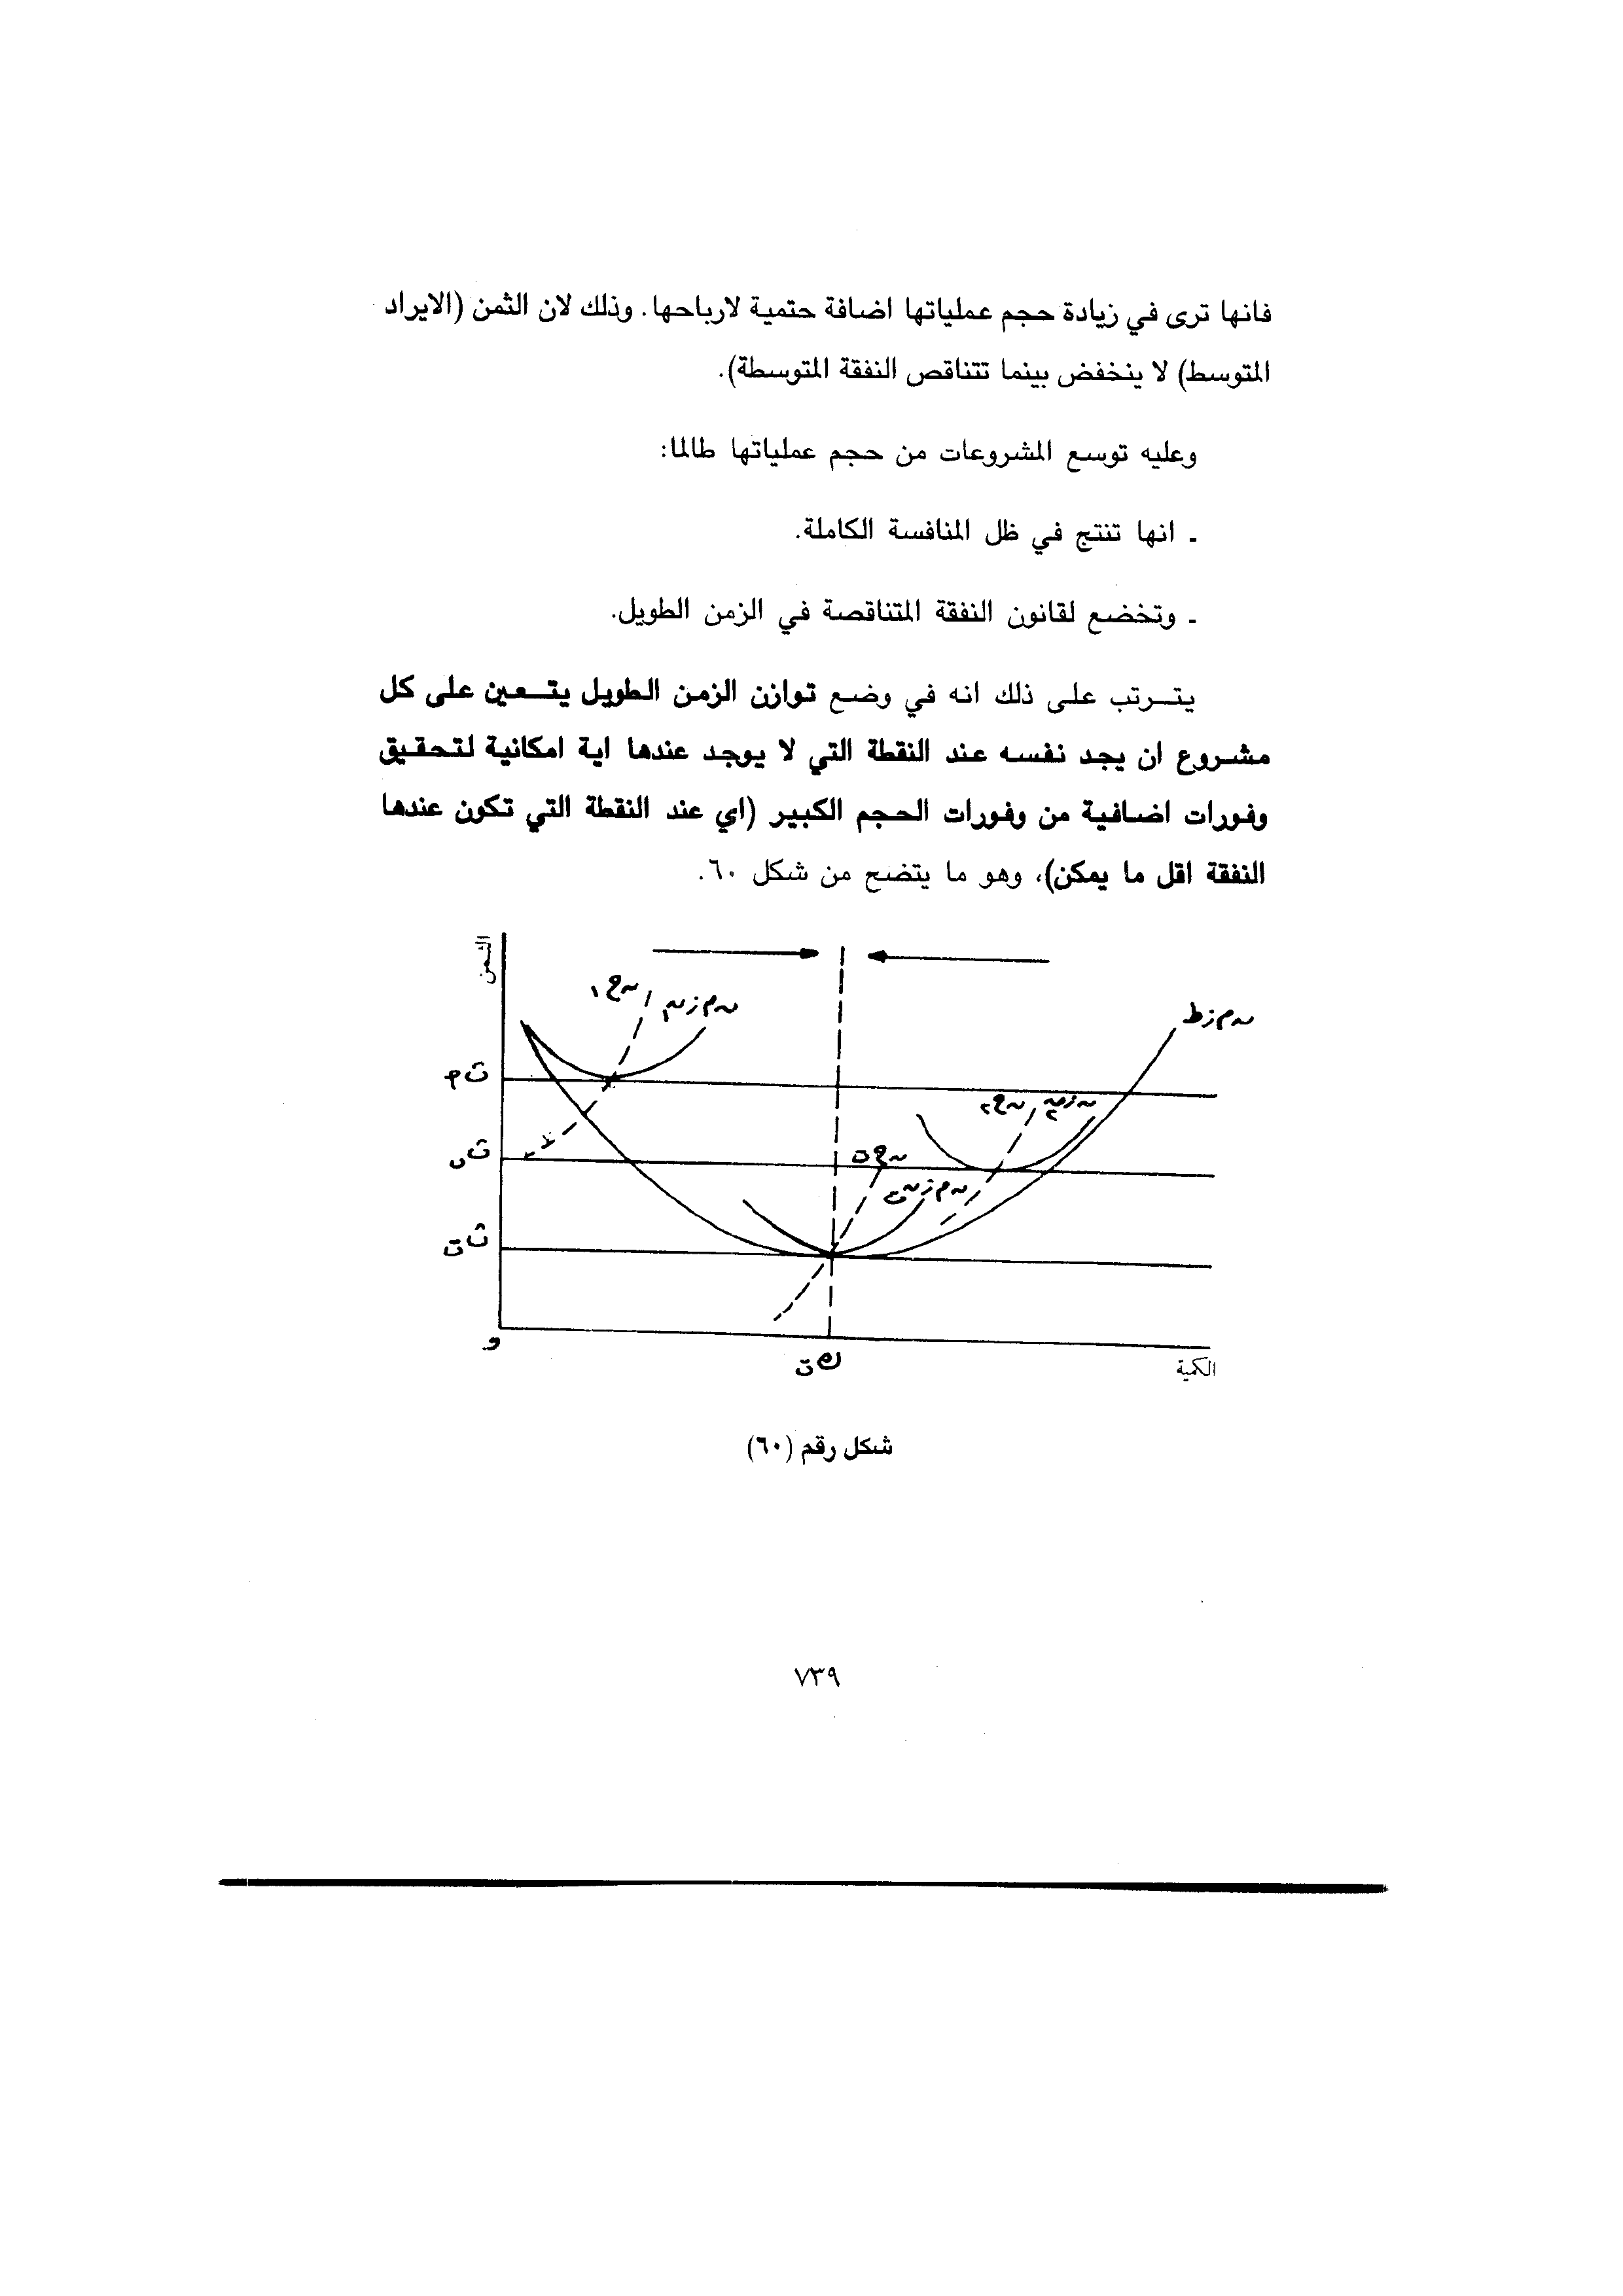 فانها ترى في زيادة حجم عملياتها اضافة حتمية لارباحها. وذلك لان الثمن (الايراد
المتوسط) لا ينخفض بينما تتناقص النفقة المتوسطة).
وعليه توسع المشروعات من حجم عملياتها طالما:
ـ انها تنتج في ظل المنافسة الكاملة.
ـ وتخضع لقانون النفقة المتناقصة في الزمن الطويل.
يتـرتب على ذلك انه في وضع توازن الزمن الطويل يتـعين على كل
مشروع ان يجد نفسه عند النقطة التي لا يوجد عندها اية امكانية لتحقيق
وفورات اضافية من وفورات الحجم الكبير (اي عند النقطة التي تكون عندها
النفقة اقل ما يمكن)، وهو ما يتضح من شكل ٦٠.
الثمن
و
الكمية
شكل رقم (٦٠)
٧٣٩